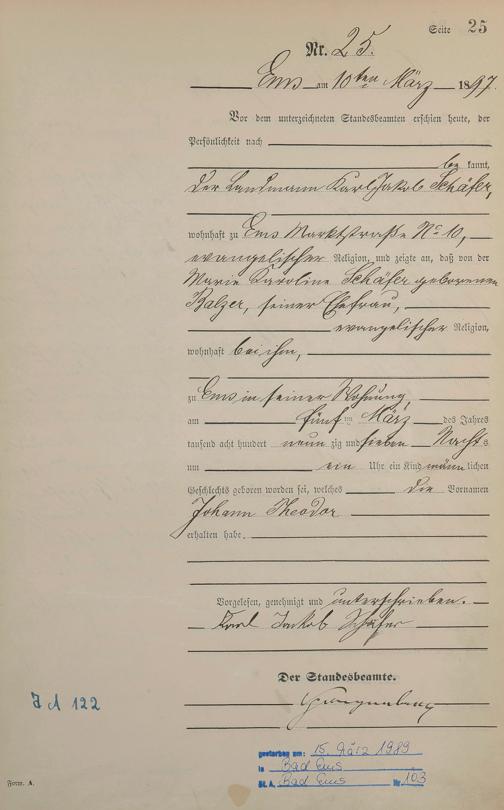 Seite 25
Nr. 25.
Ems am 10ten März 1897.
Vor dem unterzeichneten Standesbeamten erschien heute, der
Persönlichkeit nach
be kannt,
der Landmann Karl Jakob Schäfer,
wohnhaft zu Ems Marktstraße No 10,
evangelischer Religion, und zeigte an, daß von der
Marie Karoline Schäfer geborenen
Balzer, seiner Ehefrau,
evangelischer Religion,
wohnhaft bei ihm,
zu Ems in seiner Wohnung,
am fünf ten März des Jahres
tausend acht hundert neun zig und sieben Nachts
um ein Uhr ein Kind männlichen
Geschlechts geboren worden sei, welches die Vornamen
Johann Theodor
erhalten habe.
Vorgelesen, genehmigt und unterschrieben.
Karl Jakob Schäfer
Der Standesbeamte.
J A 122
gestorben am: 15. März 1989
in Bad Ems
St. A. Bad Ems Nr. 103
Form. A.